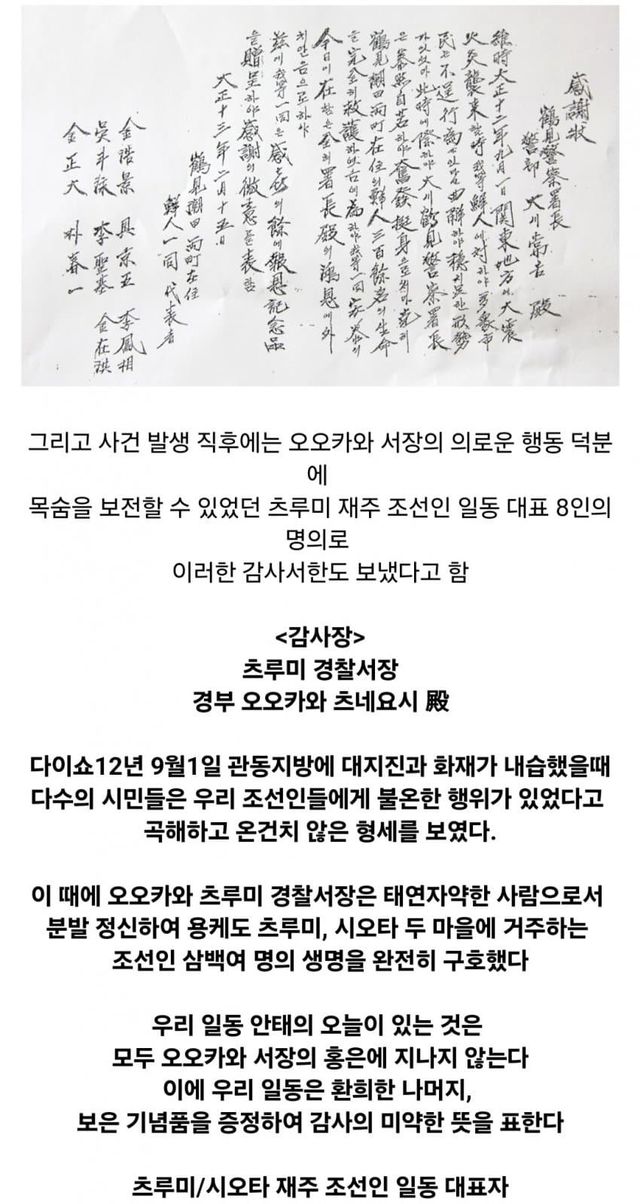 感謝狀
鶴見警察署長
警部 大川常吉 殿
維時大正十二年九月一日関東地方의大震
火災襲来할時我等鮮人에対하야多数市
民은不逞行為가曲解하야
此時에際하야大川鶴見警察署長
은泰然自若하야奮發挺身
鶴見潮田両町在住의鮮人三百餘名의生命
을完全히救護하 我等一同安泰의
今日이在함은全혀署長殿의鴻恩에
치안음으로하야
茲에我等一同은感喜의餘에報恩記念品
을贈呈하야感謝의微意를表함
大正十三年二月十五日
鶴見潮田両町在住
鮮人一同代表者
李鳳相 金在
李聖基
朴春一
金浩景
金正大
그리고 사건 발생 직후에는 오오카와 서장의 의로운 행동 덕분
에
목숨을 보전할 수 있었던 츠루미 재주 조선인 일동 대표 8인의
명의로
이러한 감사서한도 보냈다고 함
<감사장>
츠루미 경찰서장
경부 오오카와 츠네요시 殿
다이쇼12년 9월1일 관동지방에 대지진과 화재가 내습했을때
다수의 시민들은 우리 조선인들에게 불온한 행위가 있었다고
곡해하고 온건치 않은 형세를 보였다.
이 때에 오오카와 츠루미 경찰서장은 태연자약한 사람으로서
분발 정신하여 용케도 츠루미, 시오타 두 마을에 거주하는
조선인 삼백여 명의 생명을 완전히 구호했다
우리 일동 안태의 오늘이 있는 것은
모두 오오카와 서장의 홍은에 지나지 않는다
이에 우리 일동은 환희한 나머지,
보은 기념품을 증정하여 감사의 미약한 뜻을 표한다
츠루미/시오타 재주 조선인 일동 대표자